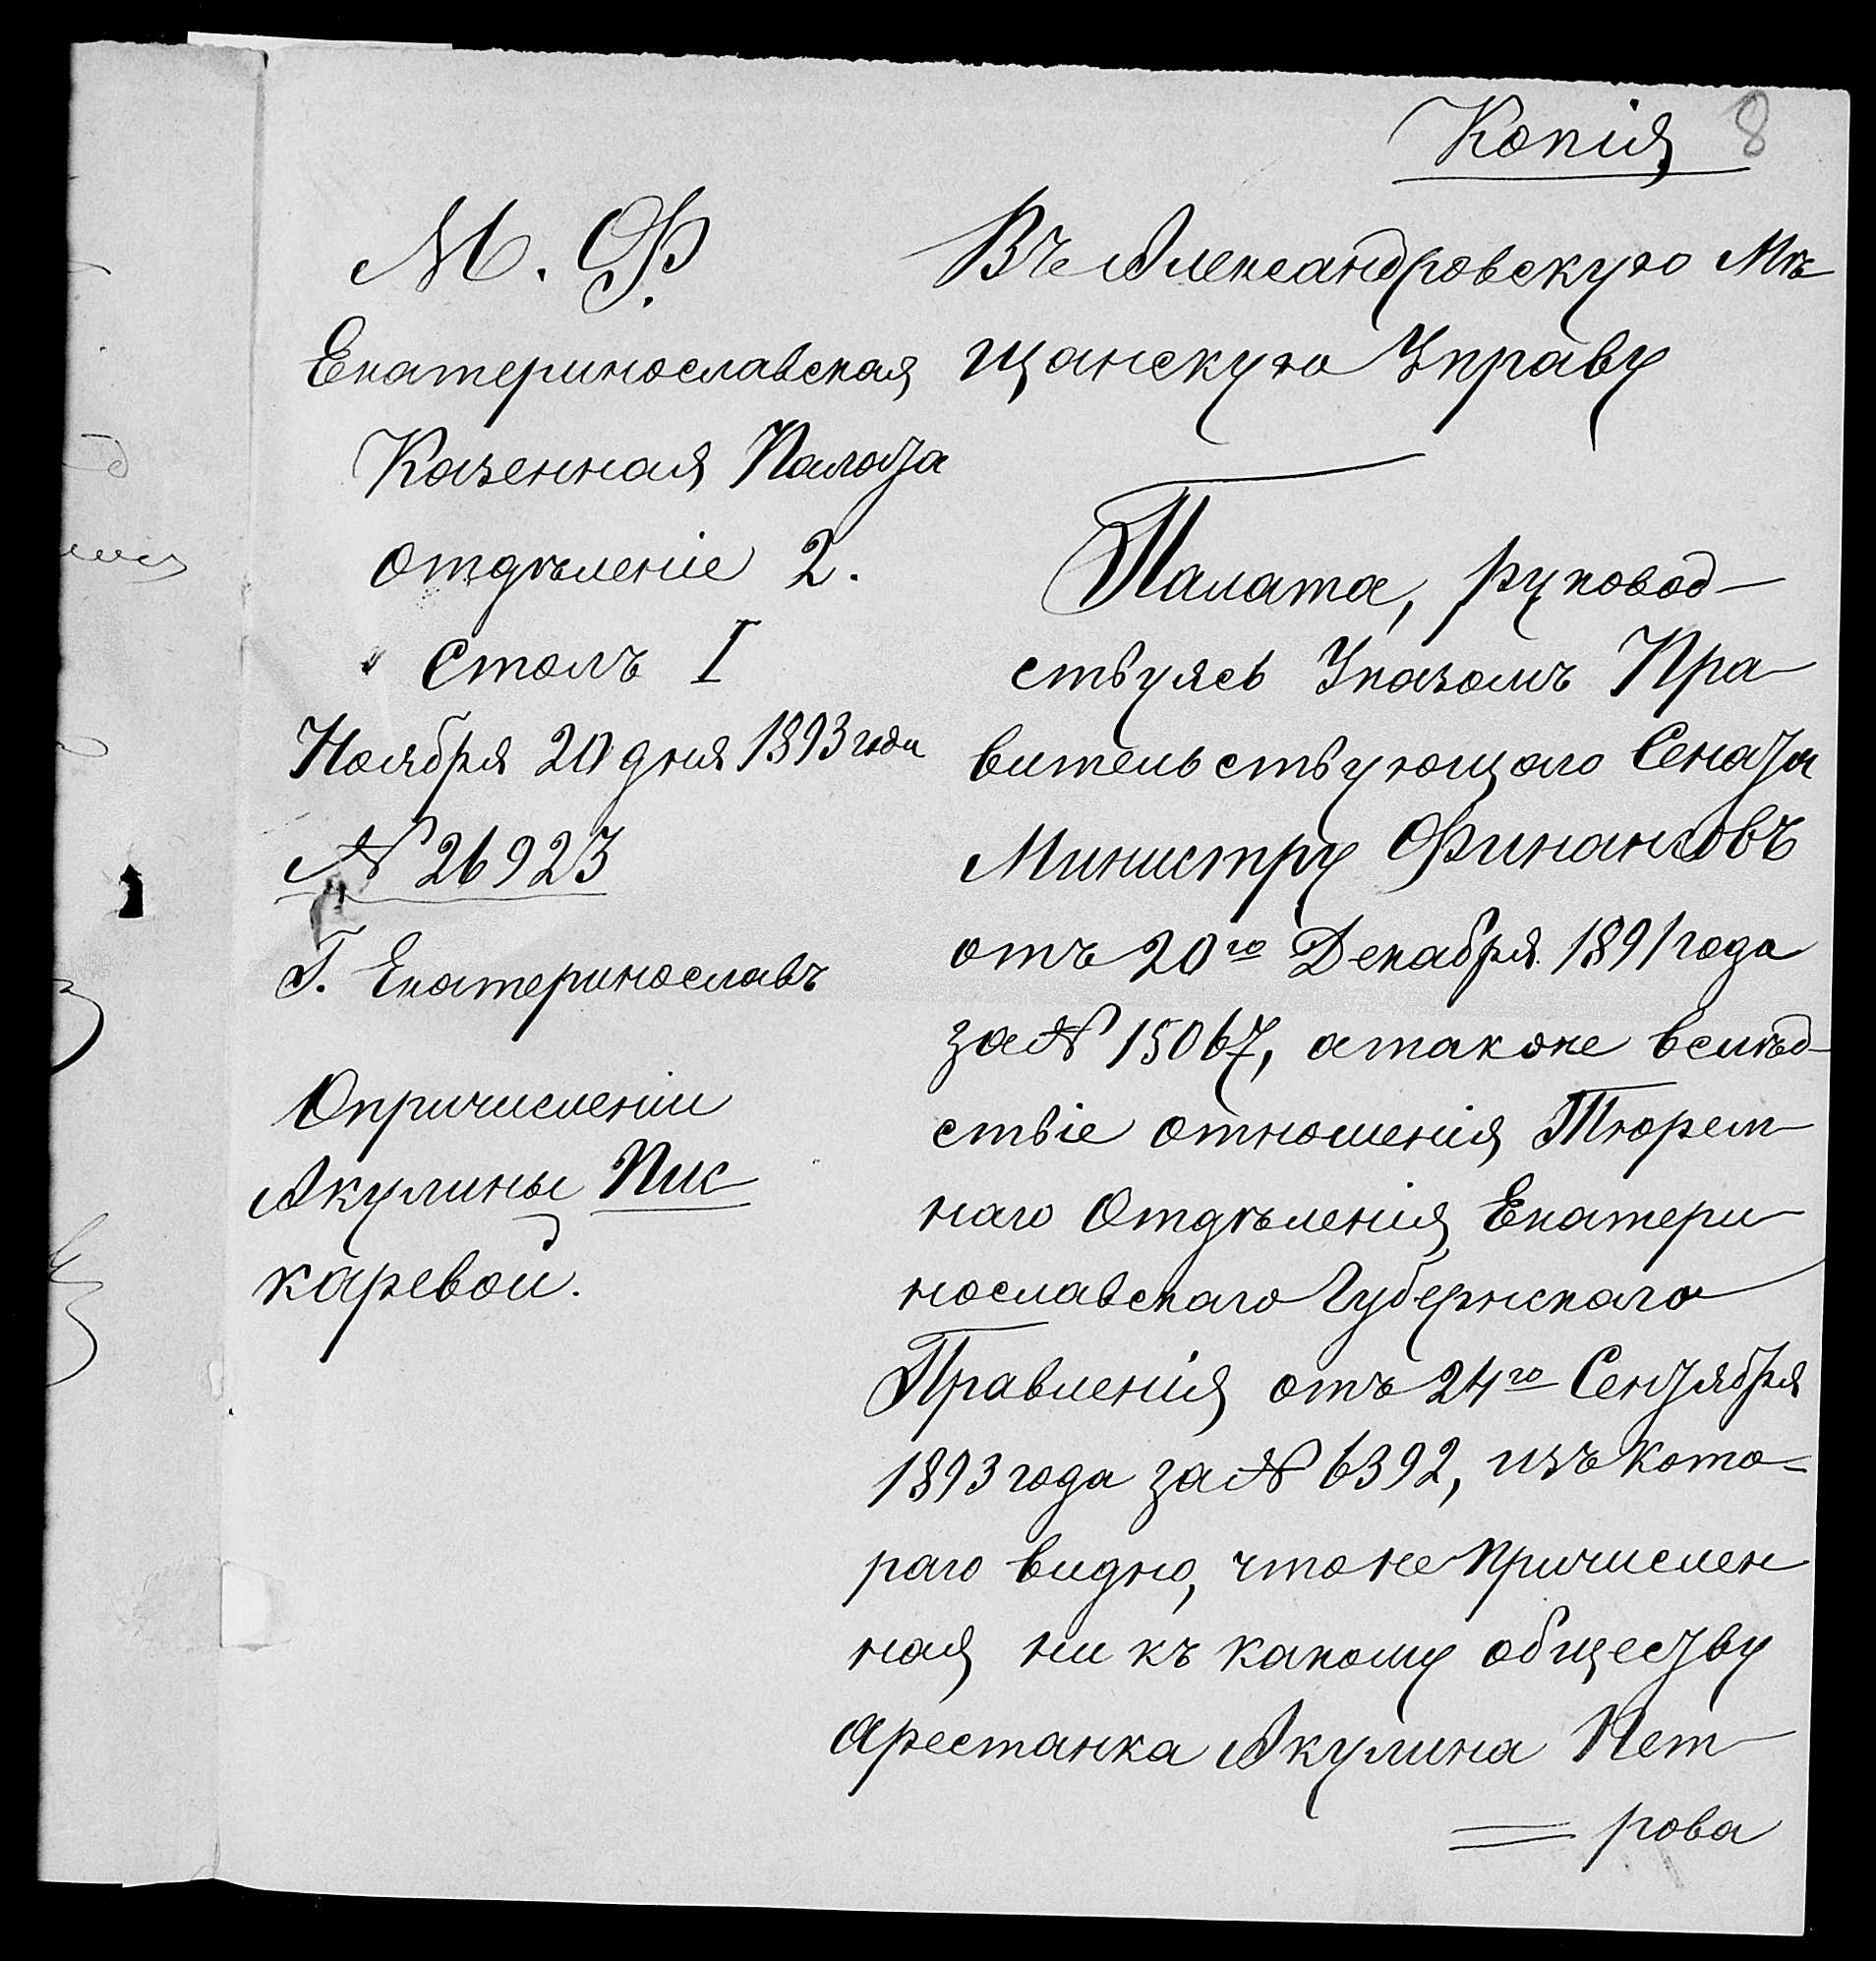 Копія 8
М. Ф.
Екатеринославская
Казенная Палата
Отдѣленіе 2.
" Столъ I
Ноября 20 дня 1893 года
№ 26923
Г. Екатеринославъ
О причисленіи
Акулины Пис
каревой.
Въ Александровскую Мѣ
щанскую Управу
Палата, руковод-
ствуясь Указомъ Пра-
вительствующаго Сената
Министру Финансовъ
отъ 20го Декабря 1891 года
за № 15067, а также вслѣд-
ствіе отношенія Тюрем-
наго Отдѣленія Екатери-
нославскаго Губернскаго
Правленія отъ 24го Сентября
1893 года за № 6392, изъ кото=
раго видно, что не причислен
ная ни къ какому обществу
арестанка Акулина Пет-
рова